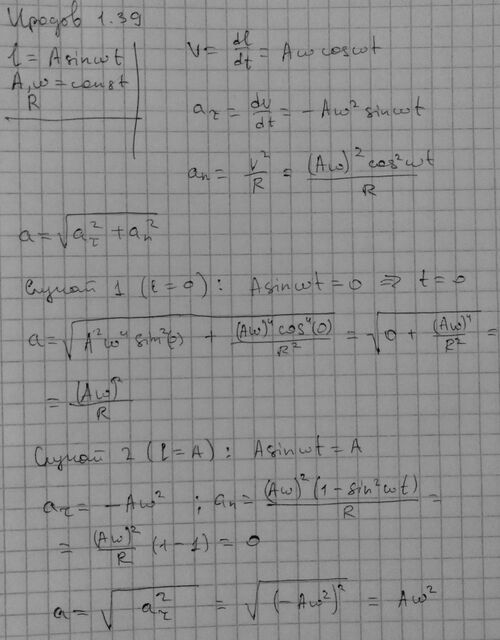 Иродов 1.39
l = A sin ωt
A, ω = const
R
v = dl/dt = Aω cos ωt
a_τ = dv/dt = -Aω² sin ωt
a_n = v²/R = (Aω)² cos² ωt / R
a = √(a_τ² + a_n²)
Случай 1 (l = 0): A sin ωt = 0 ⇒ t = 0
a = √(A²ω⁴ sin²(0) + (Aω)⁴ cos⁴(0) / R²) = √(0 + (Aω)⁴ / R²) =
= (Aω)² / R
Случай 2 (l = A): A sin ωt = A
a_τ = -Aω² ; a_n = (Aω)² (1 - sin² ωt) / R =
= (Aω)² / R (1 - 1) = 0
a = √(a_τ²) = √((-Aω²)²) = Aω²